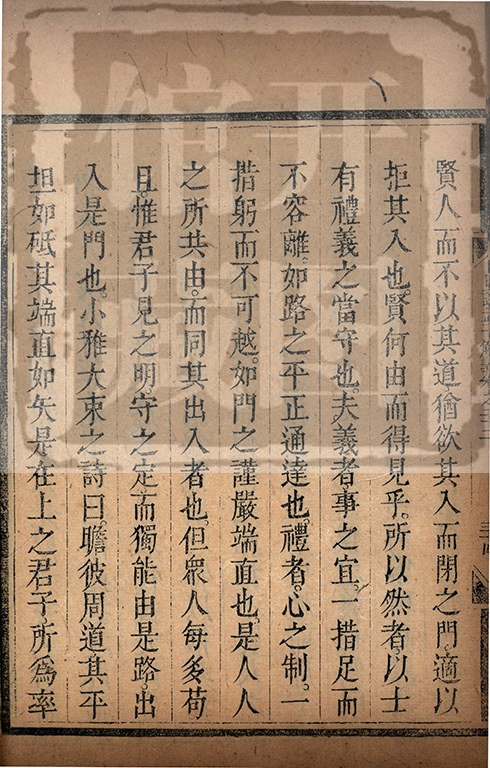 賢人而不以其道猶欲其入而閉之門適以
拒其入也。賢何由而得見乎。所以然者以士
有禮義之當守也。夫義者事之宜。一措足而
不容離。如路之平正通達也。禮者心之制。一
措躬而不可越。如門之謹嚴端直也。是人人
之所共由。而同其出入者也。但衆人每多苟
且。惟君子見之明。守之定。而獨能由是路。出
入是門也。小雅大東之詩曰。瞻彼周道其平
坦如砥其端直如矢是在上之君子所爲率